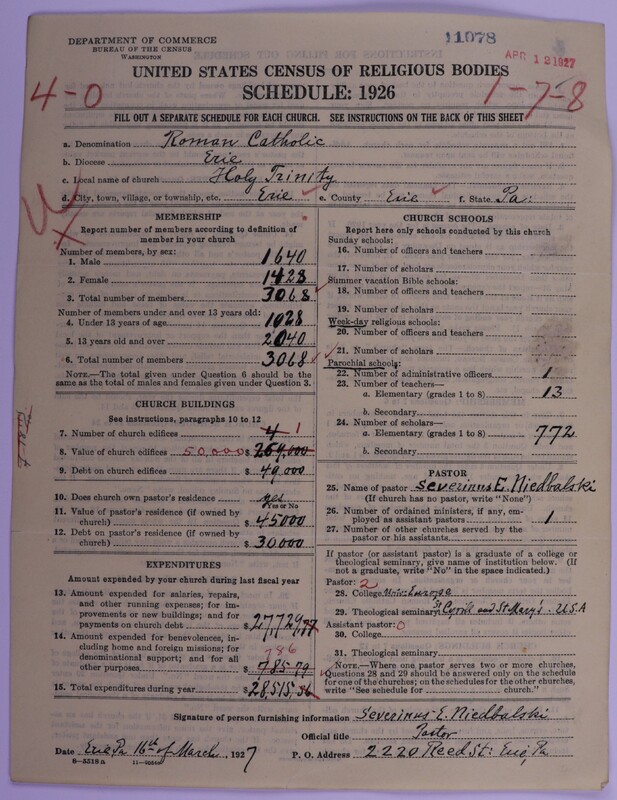 DEPARTMENT OF COMMERCE
BUREAU OF THE CENSUS
WASHINGTON
11078
APR 12 1927
UNITED STATES CENSUS OF RELIGIOUS BODIES
SCHEDULE: 1926
4-0
1-7-8
FILL OUT A SEPARATE SCHEDULE FOR EACH CHURCH. SEE INSTRUCTIONS ON THE BACK OF THIS SHEET
a. Denomination Roman Catholic
b. Diocese Erie
c. Local name of church Holy Trinity
d. City, town, village, or township, etc. Erie e. County Erie f. State Pa.
MEMBERSHIP
Report number of members according to definition of
member in your church
Number of members, by sex:
1. Male 1640
2. Female 1428
3. Total number of members 3068
Number of members under and over 13 years old:
4. Under 13 years of age 1028
5. 13 years old and over 2040
6. Total number of members 3068
NOTE.—The total given under Question 6 should be the
same as the total of males and females given under Question 3.
CHURCH BUILDINGS
See instructions, paragraphs 10 to 12
7. Number of church edifices 4 1
8. Value of church edifices 50,000 $ 269,000
9. Debt on church edifices $ 49,000
10. Does church own pastor's residence yes
Yes or No
11. Value of pastor's residence (if owned by
church) $ 45000
12. Debt on pastor's residence (if owned by
church) $ 30,000
EXPENDITURES
Amount expended by your church during last fiscal year
13. Amount expended for salaries, repairs,
and other running expenses; for im-
provements or new buildings; and for
payments on church debt $ 27,729,77
14. Amount expended for benevolences, in-
cluding home and foreign missions; for
denominational support; and for all
other purposes 786 $ 785.79
15. Total expenditures during year $ 28,515,56
CHURCH SCHOOLS
Report here only schools conducted by this church
Sunday schools:
16. Number of officers and teachers
17. Number of scholars
Summer vacation Bible schools:
18. Number of officers and teachers
19. Number of scholars
Week-day religious schools:
20. Number of officers and teachers
21. Number of scholars
Parochial schools:
22. Number of administrative officers 1
23. Number of teachers—
a. Elementary (grades 1 to 8) 13
b. Secondary
24. Number of scholars—
a. Elementary (grades 1 to 8) 772
b. Secondary
PASTOR
25. Name of pastor Severinus E. Niedbalski
(If church has no pastor, write "None")
26. Number of ordained ministers, if any, em-
ployed as assistant pastors 1
27. Number of other churches served by the
pastor or his assistants
If pastor (or assistant pastor) is a graduate of a college or
theological seminary, give name of institution below. (If
not a graduate, write "No" in the space indicated.)
Pastor: 2
28. College Univ. Europe
29. Theological seminary St Cyrill and St Mary's - U.S.A
Assistant pastor: 0
30. College
31. Theological seminary
NOTE.—Where one pastor serves two or more churches,
Questions 28 and 29 should be answered only on the schedule
for one of the churches; on the schedules for the other churches,
write "See schedule for church."
Signature of person furnishing information Severinus E. Niedbalski
Official title Pastor
Date Erie Pa 16th of March, 1927 P. O. Address 2220 Reed St: Erie, Pa
8—5518 a